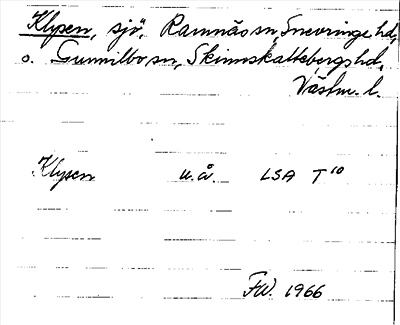 Klysen, sjö, Ramnäs sn, Snevringe hd,
o. Gunnilbo sn, Skinnskattebergs hd,
Västm. l.
Klysen u.å. LSA T¹⁰
FW. 1966